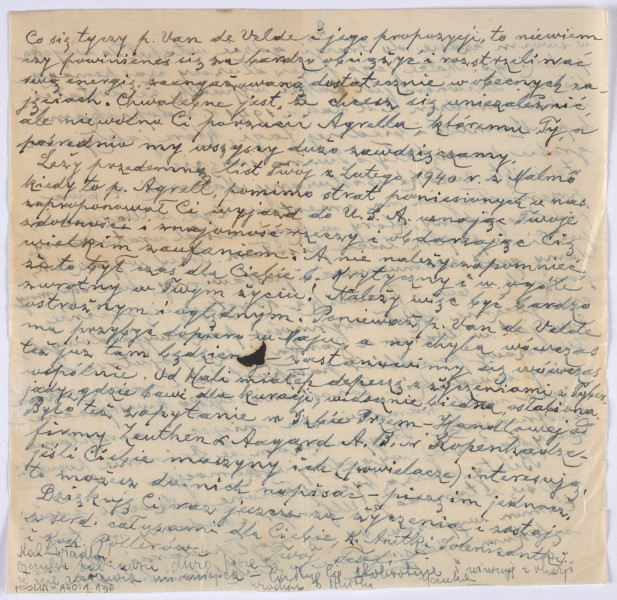 Co się tyczy p. Van de Velde i jego propozycji, to niewiem
czy powinieneś się za bardzo obciążyć i rozstrzeliwać
swą energię, zaangażowaną dostatecznie w obecnych za-
jęciach. Chwalebne jest, że chcesz się uniezależnić
ale niewolno Ci porzucić Agrella, któremu Ty, a
pośrednio my wszyscy dużo zawdzięczamy.
Leży przedemną list Twój z Lutego 1940 r. z Malmö
kiedy to p. Agrell pomimo strat poniesionych u nas
zaproponował Ci wyjazd do U.S.A. uznając Twoje
zdolności i znajomość rzeczy i obdarzając Cię
wielkim zaufaniem. A nie należy zapomnieć
że to był czas dla Ciebie b. krytyczny i w ogóle
zwrotny w Twym życiu! Należy więc być bardzo
ostrożnym i oględnym. Ponieważ p. Van de Velde
ma przybyć dopiero w Maju, a my chyba wówczas
też już tam będziemy - zastanowimy się wówczas
wspólnie. Od Hali miałem depeszę z życzeniami z
jady, gdzie bawi dla kuracji, widocznie, biedna, osłabiona.
Było też zapytanie w Izbie Przem-Handlowej od
firmy Zeuthen & Aagard A.B. w Kopenhadze-
jeśli Ciebie maszyny ich (powielacze) interesują,
to możesz do nich napisać - piszą im jednocz.
Dziękuję Ci raz jeszcze za życzenia i zostaję
z serd. całusami dla Ciebie, K. Nutki
i Koch.
Twój
dużo
Ciebie
MPOLIN-A40.1.196